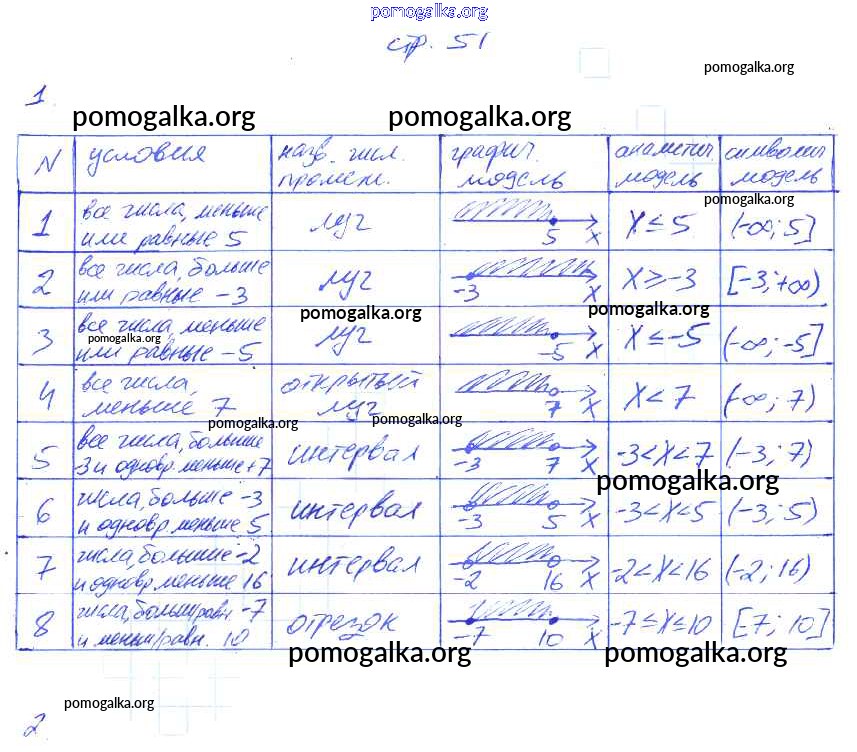 pomogalka.org
стр. 51
pomogalka.org
1.
pomogalka.org pomogalka.org
N условия назв. числ. промеж. графич. модель аналитич. модель символич. модель
pomogalka.org
1 все числа, меньше или равные 5 луг 5 X X ≤ 5 (-∞; 5]
2 все числа, больше или равные -3 луг -3 X X ≥ -3 [-3; +∞)
pomogalka.org pomogalka.org
3 все числа, меньше или равные -5 луг -5 X X ≤ -5 (-∞; -5]
pomogalka.org
4 все числа, меньше 7 открытый луг 7 X X < 7 (-∞; 7)
pomogalka.org pomogalka.org
5 все числа, больше -3 и одновр. меньше +7 интервал -3 7 X -3 < X < 7 (-3; 7)
pomogalka.org
6 числа, больше -3 и одновр. меньше 5 интервал -3 5 X -3 < X < 5 (-3; 5)
7 числа, больше -2 и одновр. меньше 16 интервал -2 16 X -2 < X < 16 (-2; 16)
8 числа, больш/равн -7 и меньш/равн. 10 отрезок -7 10 X -7 ≤ X ≤ 10 [7; 10]
pomogalka.org pomogalka.org
pomogalka.org
2